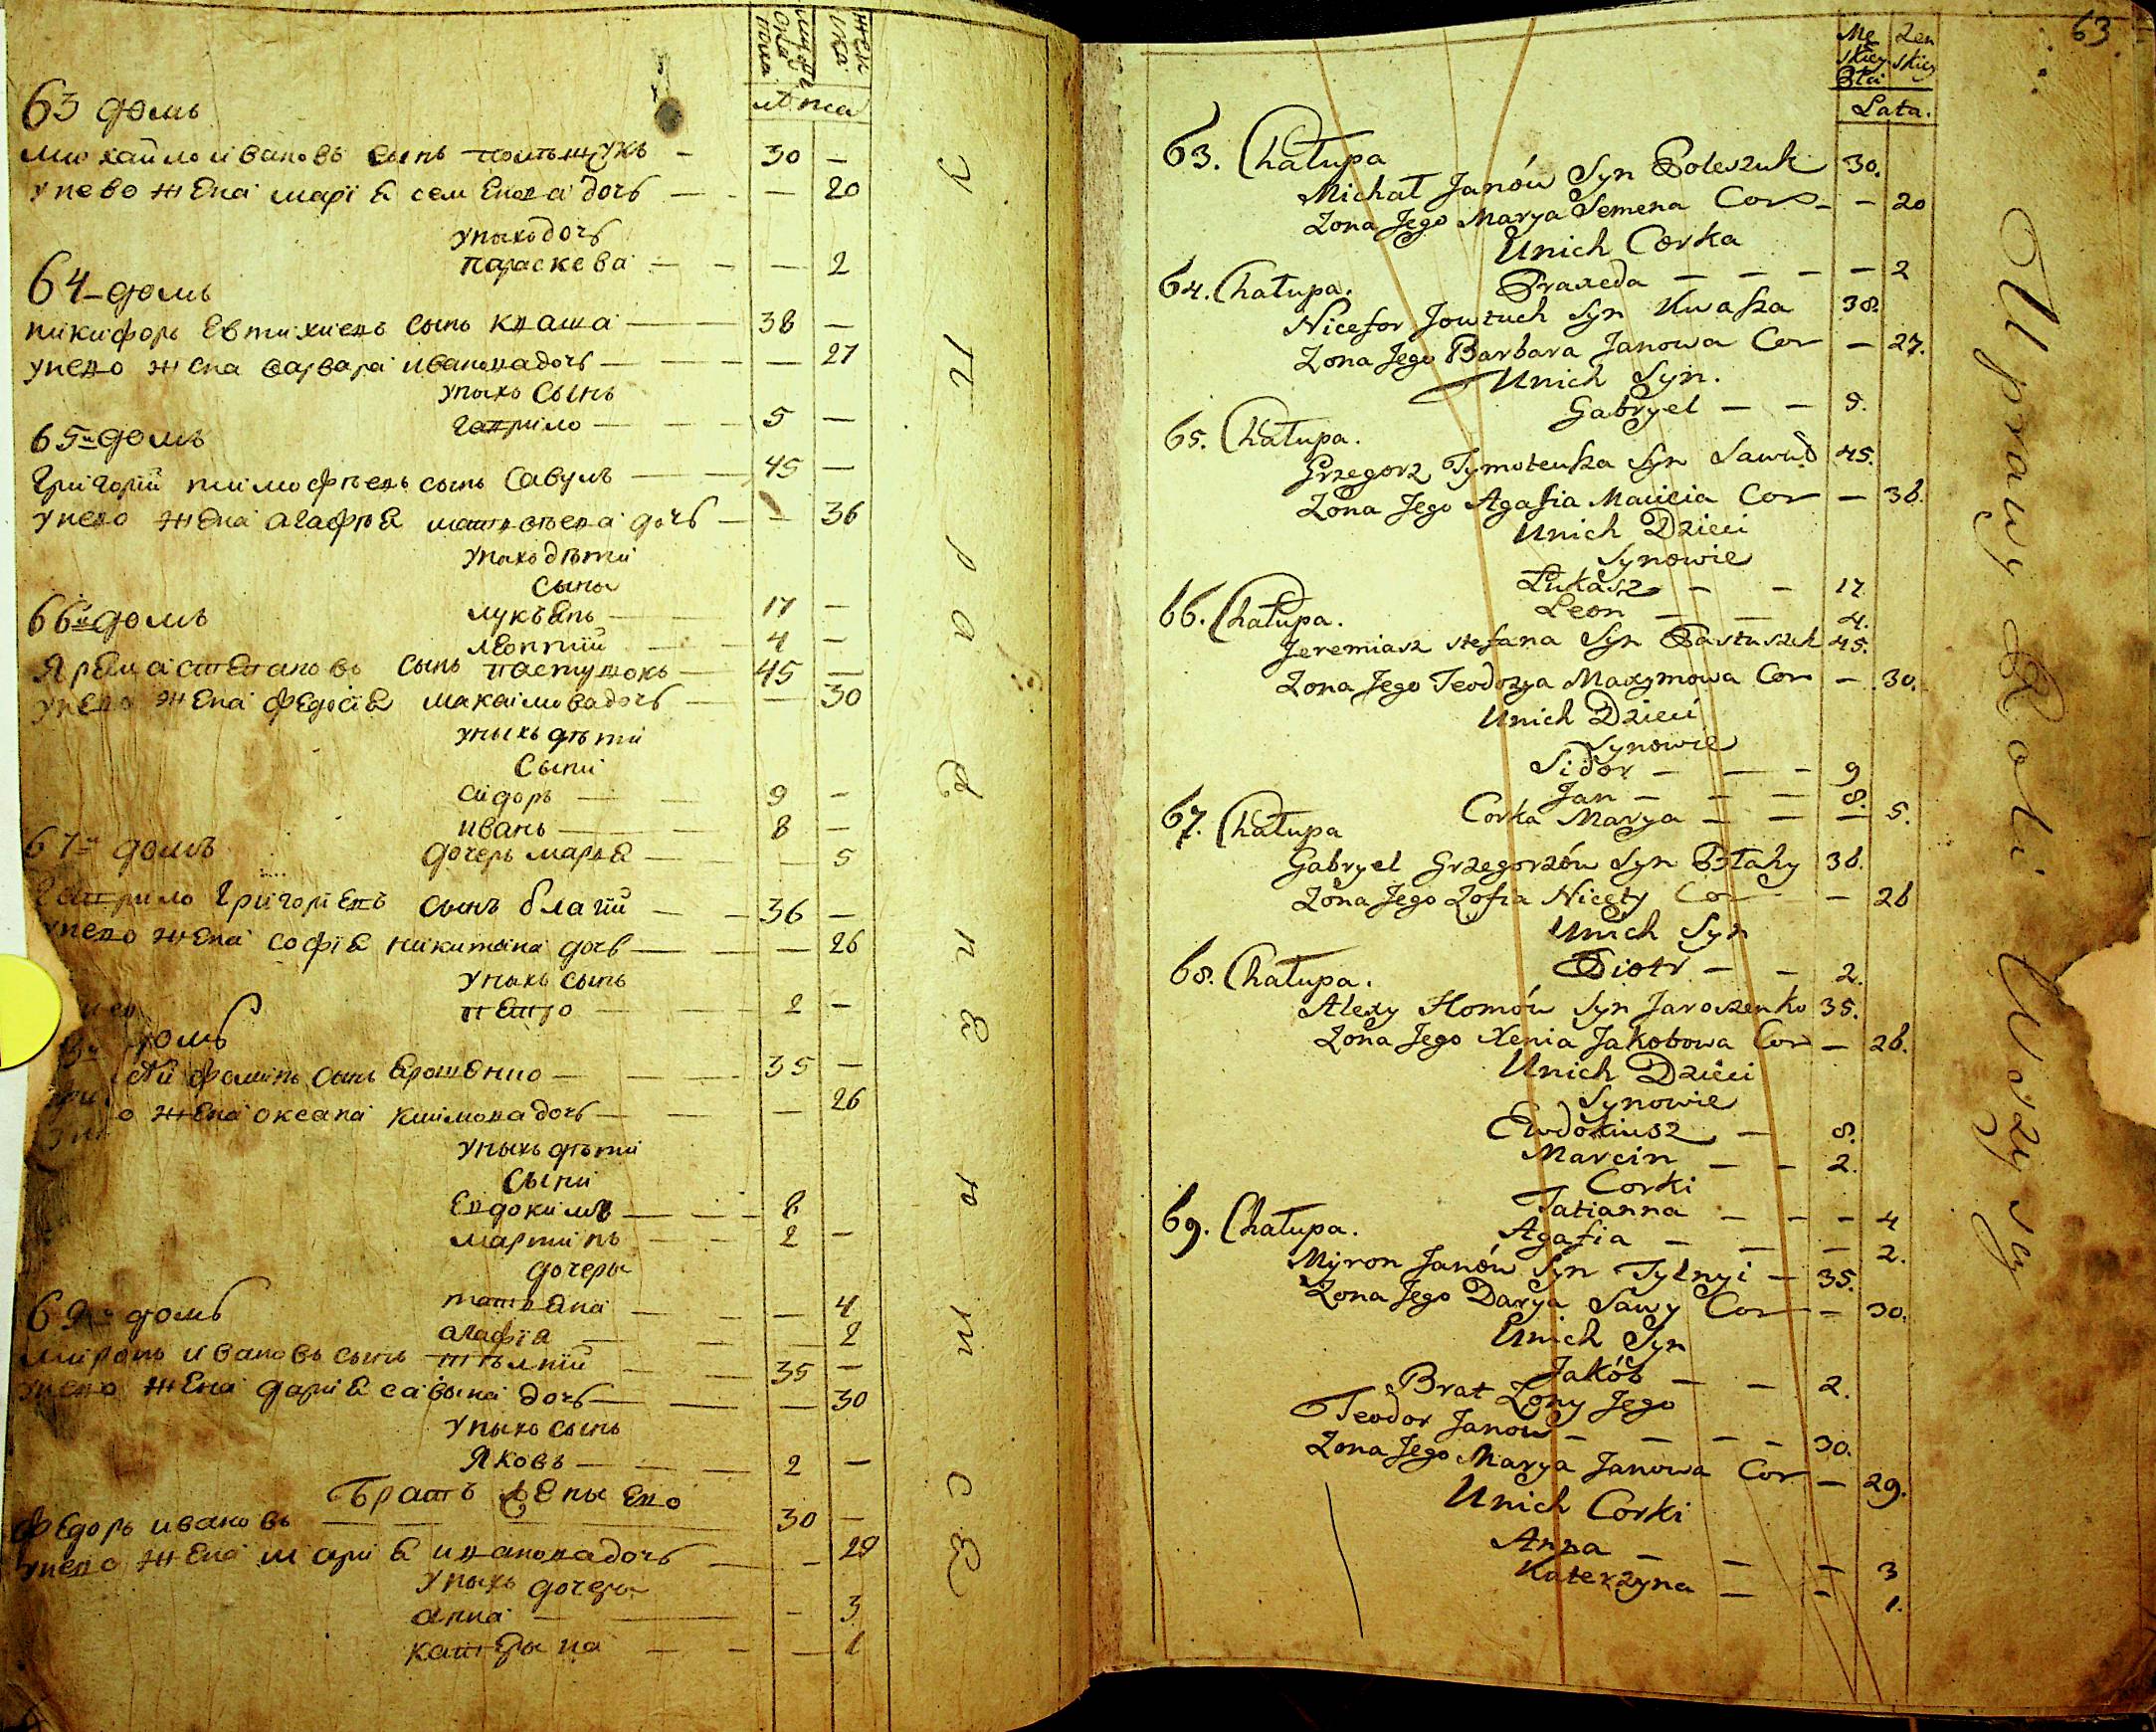 мужеска пола
женска
лѣта
63 домъ
михайло ивановъ сынъ полѣщукъ - 30 -
унево жена маріа семенова дочь - - 20
унихъ дочь
параскева - - - 2
64 домъ
никифоръ Евтихиевъ сынъ кваша - 38 -
унево жена варвара иванова дочь - - 27
унихъ сынъ
гаврило - - 5 -
65й домъ
Григорій тимофѣевъ сынъ савулъ - 45 -
унево жена агафѣа матвѣева дочь - - 36
унихъ дѣти
сыны
лукъянъ - 17 -
леонтій - 4 -
66й домъ
Ярема степановъ сынъ пастушокъ - 45 -
унево жена федосіа максимова дочь - - 30
унихъ дѣти
сыни
сидоръ - - 9 -
иванъ - - 8 -
дочерь маріа - - 5
67й домъ
Гаврило Григоріевъ сынъ благій - 36 -
унево жена софіа никитина дочь - - 26
унихъ сынъ
петро - - 2 -
домъ
фоминъ сынъ ярошенко - 35 -
жена оксана климова дочь - - 26
унихъ дѣти
сыни
Евдокимъ - - 8
мартинъ - - 2 -
дочеры
татьяна - - 4
агафіа - - 2
69й домъ
миронъ ивановъ сынъ тылній - 35 -
унево жена даріа савына дочь - - 30
унихъ сынъ
Яковъ - - 2 -
братъ жены Ево
Федоръ ивановъ - 30 -
унево жена маріа иванова дочь - - 29
унихъ дочеры
анна - - 3
катерына - - 1
У п р а в н е н ю т с е
63.
Męskiey Płci
Żenskiey
Lata.
63. Chałupa
Michał Janów Syn Poleszuk 30.
Zona Jego Marya Semena Cor - - 20
Unich Corka
Praxeda - - - - 2
64. Chałupa.
Nicefor Jowtuch Syn Kwasza 38.
Zona Jego Barbara Janowa Cor - 27.
Unich Syn.
Gabryel - - 5.
65. Chałupa.
Grzegorz Tymoteusza Syn Sawuł 45.
Zona Jego Agafia Macieia Cor - 36.
Unich Dzieci
Synowie
Łukasz - - 17.
Leon - - 4.
66. Chałupa.
Jeremiasz Stefana Syn Pastuszek 45.
Zona Jego Teodozya Maxymowa Cor - 30.
Unich Dzieci
Synowie
Sidor - - - 9
Jan - - - 8.
Corka Marya - - - 5.
67. Chałupa
Gabryel Grzegorzów Syn Błahy 36.
Zona Jego Zofia Nicety Cor - 26
Unich Syn
Piotr - - 2.
68. Chałupa.
Alexy Homów Syn Jaroszenko 35.
Zona Jego Xenia Jakobowa Cor - 26.
Unich Dzieci
Synowie
Ewdokiusz - 8.
Marcin - - 2.
Corki
Tatianna - - - 4
Agafia - - - 2.
69. Chałupa.
Myron Janów Syn Tylnyi - 35.
Zona Jego Darya Sawy Cor - 30.
Unich Syn
Jakób - - 2.
Brat Zony Jego
Teodor Janow - - - - 30.
Zona Jego Marya Janowa Cor - 29.
Unich Corki
Anna - - - 3
Katerzyna - - 1.
Uprawy Roli Wszyscy